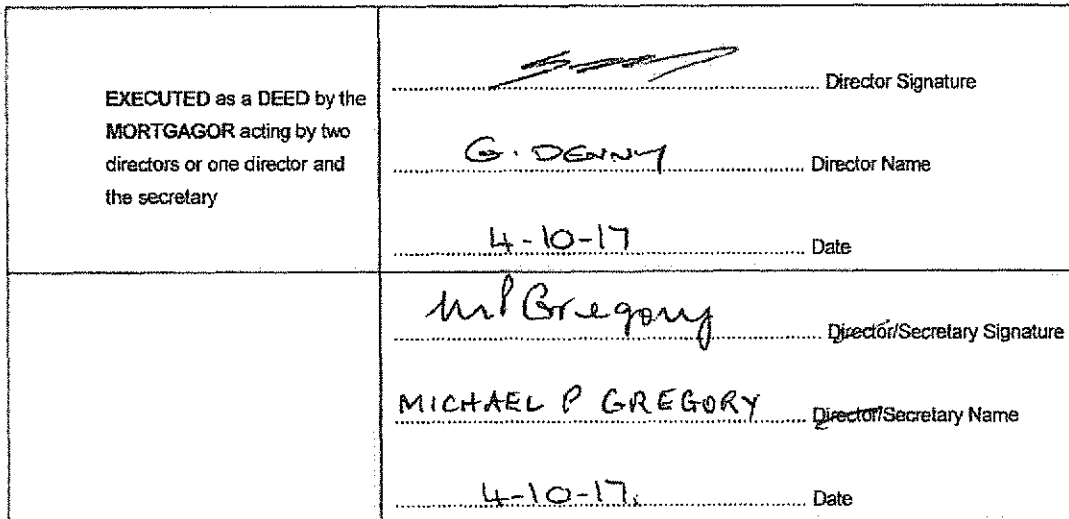 EXECUTED as a DEED by the
MORTGAGOR acting by two
directors or one director and
the secretary
Director Signature
G. DENNY
Director Name
4-10-17
Date
M P Gregory
Director/Secretary Signature
MICHAEL P GREGORY
Director/Secretary Name
4-10-17.
Date